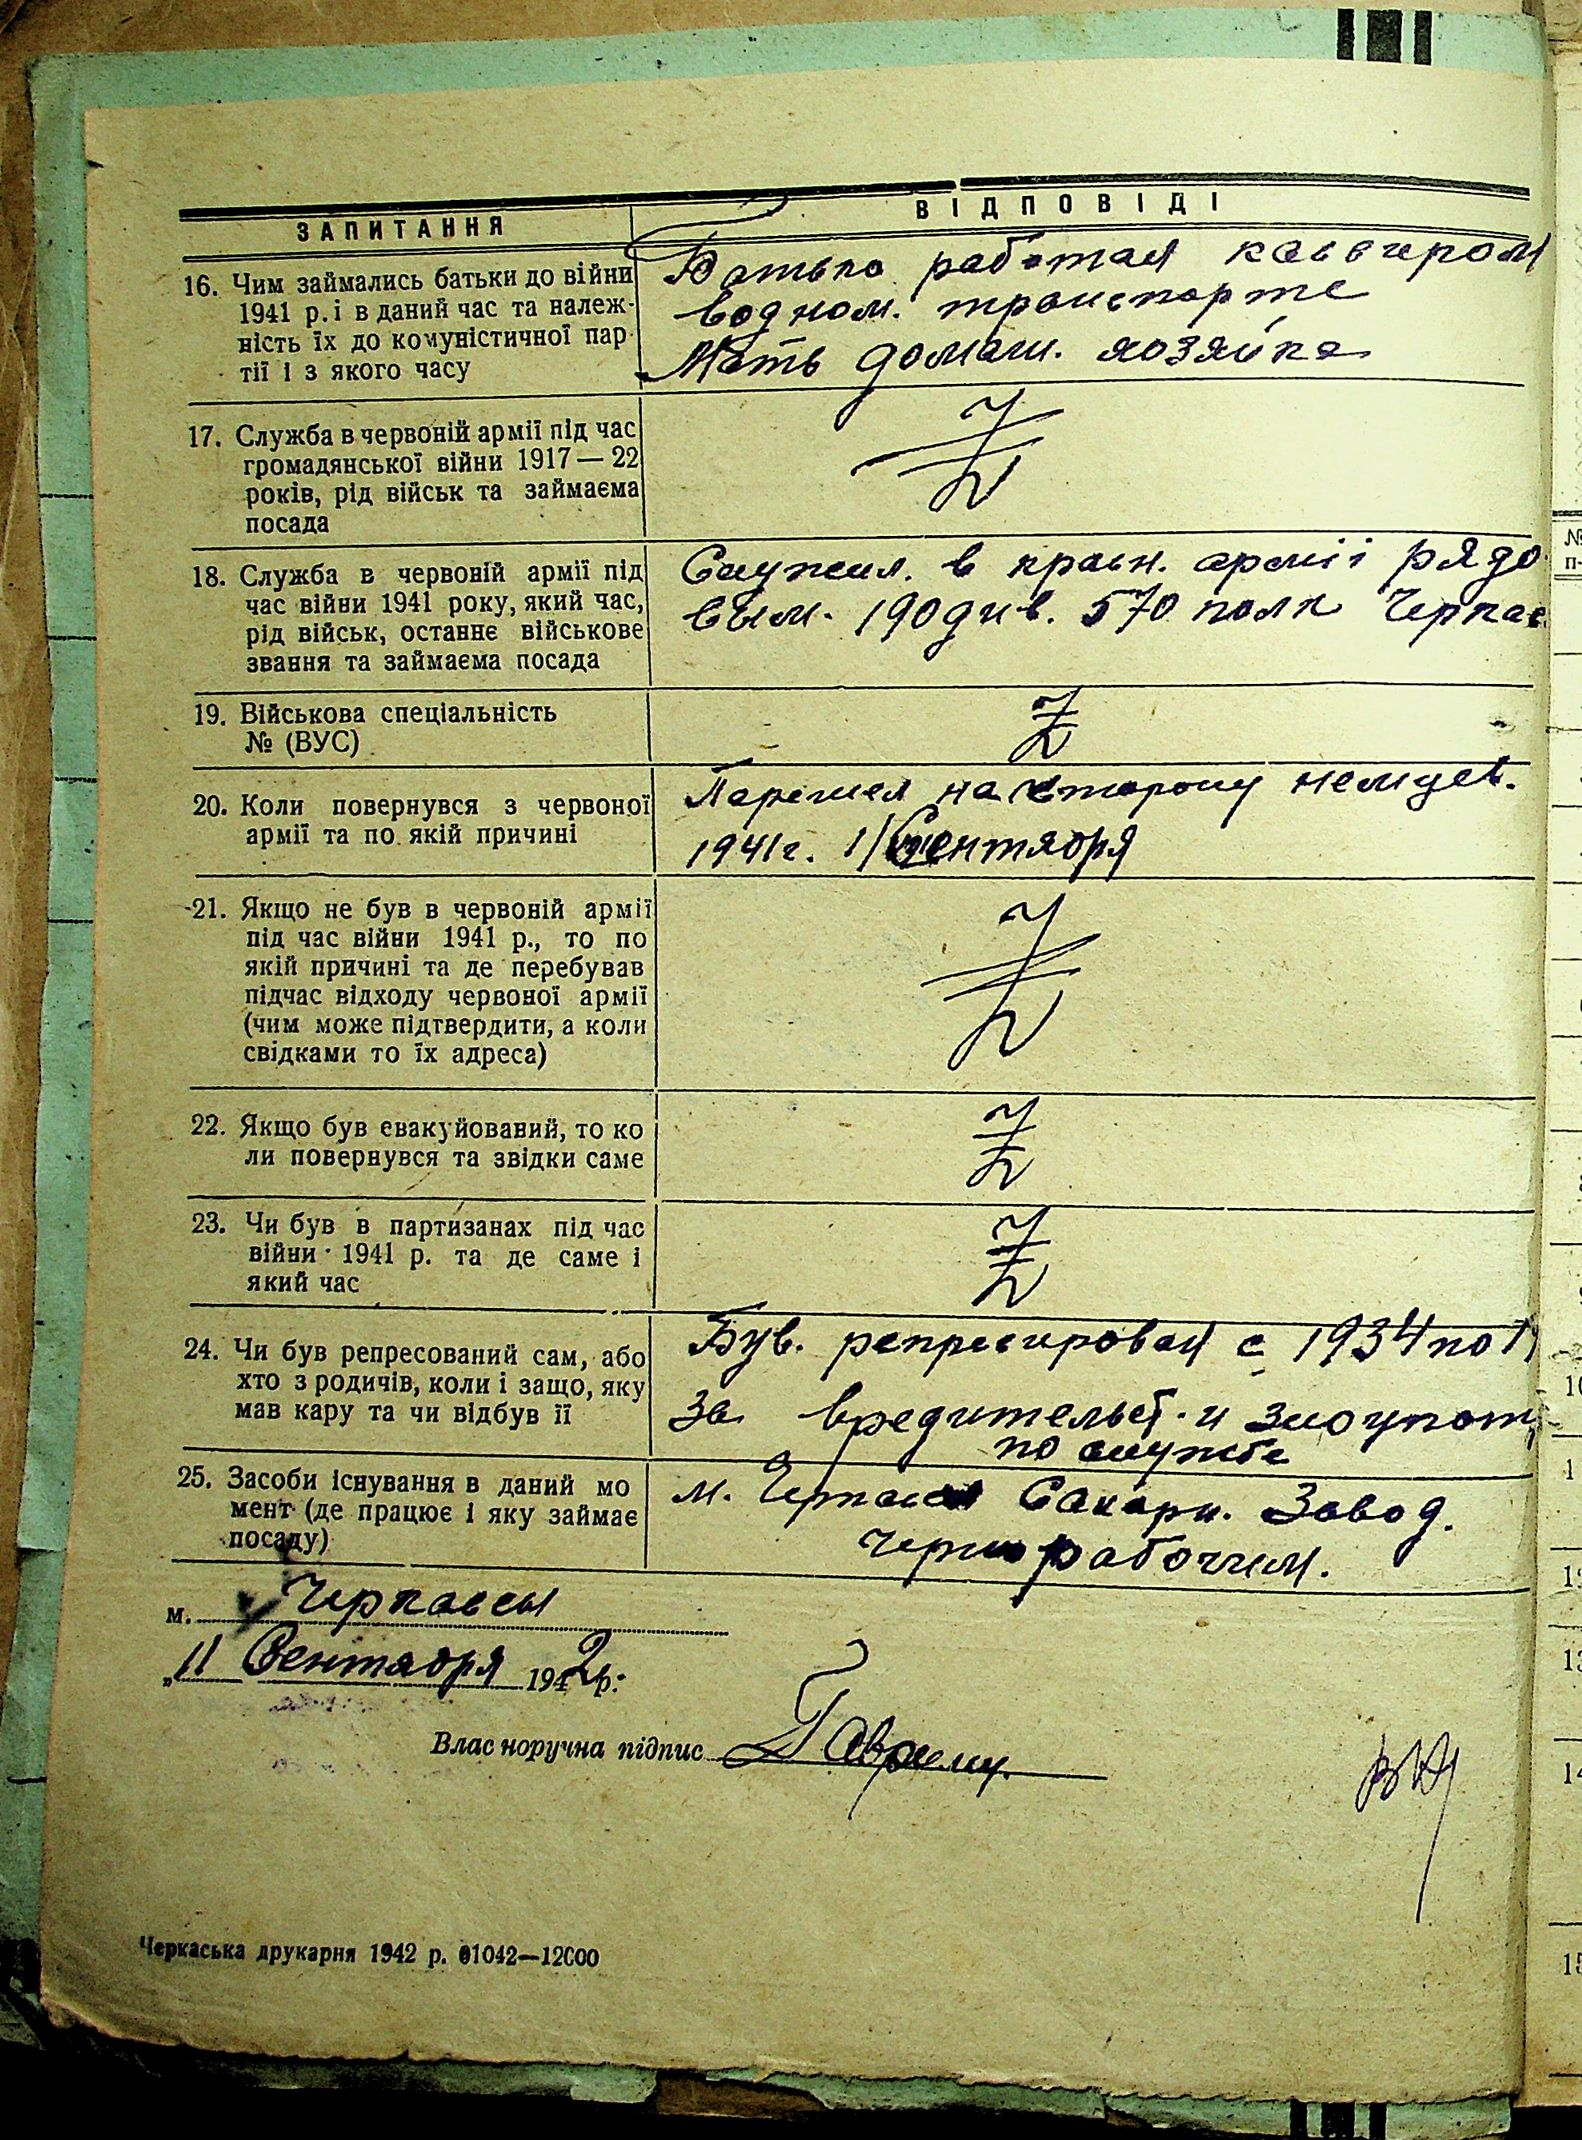 ЗАПИТАННЯ
ВІДПОВІДІ
16. Чим займались батьки до війни
1941 р. і в даний час та належ-
ність їх до комуністичної пар-
тії і з якого часу
Батько работал кассиром
водном. транспорте
Мать домаш. хозяйка
17. Служба в червоній армії під час
громадянської війни 1917—22
років, рід військ та займаєма
посада
18. Служба в червоній армії під
час війни 1941 року, який час,
рід військ, останнє військове
звання та займаєма посада
Служил. в красн. армii рядо
вым. 190 див. 570 полк Черкас
19. Військова спеціальність
№ (ВУС)
20. Коли повернувся з червоної
армії та по якій причині
Перешел на сторону немцев.
1941г. 1/ Сентября
21. Якщо не був в червоній армії
під час війни 1941 р., то по
якій причині та де перебував
підчас відходу червоної армії
(чим може підтвердити, а коли
свідками то їх адреса)
22. Якщо був евакуйований, то ко
ли повернувся та звідки саме
23. Чи був в партизанах під час
війни 1941 р. та де саме і
який час
24. Чи був репресований сам, або
хто з родичів, коли і защо, яку
мав кару та чи відбув її
Був. репресирован с 1934 по
За вредительст. и злоупот
по службе
25. Засоби існування в даний мо
мент (де працює і яку займає
посаду)
м. Черкассы Сахарн. Завод.
Чернорабочим.
м. Черкассы
„11 Сентября 1942 р.
Власноручна підпис
Черкаська друкарня 1942 р. 01042—12000
№
п-
10
1
13
14
15